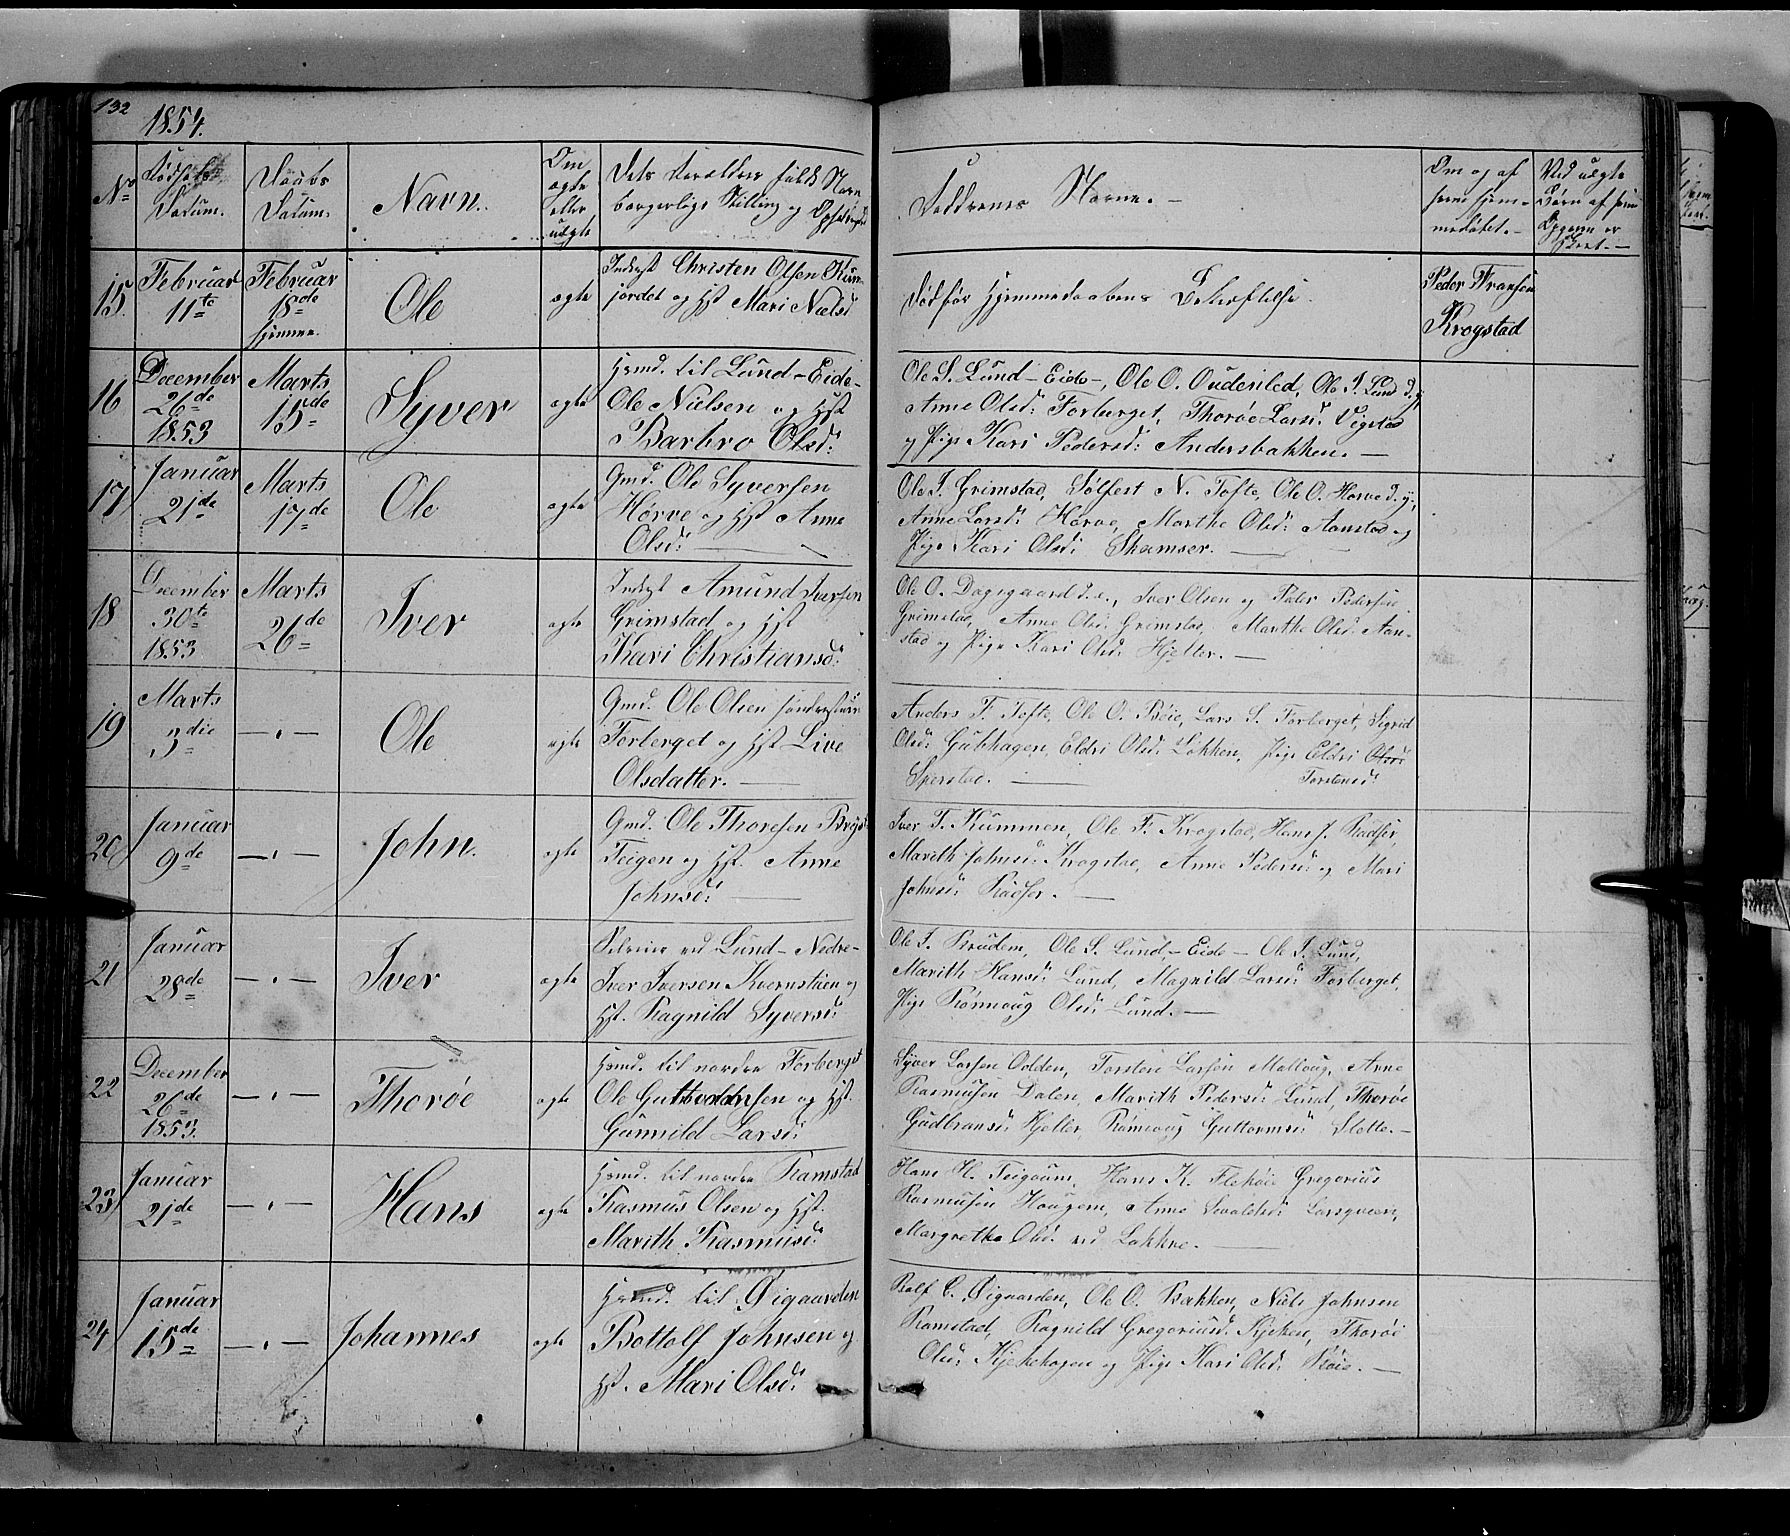 132
1854.
No
Fødsels Datum.
Daabs Datum.
Navn.
Om ægte eller uægte
Dets Forældres fulde Navn
borgerlige Stilling og Opholdssted
Faddrenes Navne. —
Om og af hvem hjem-
medøbt. —
Ved uægte
Børn af hvem
15
Februar
11te
Februar
18de
hjemme.
Ole
ægte
Inderst Christen Olsen Kum-
jordet og Hst Mari Nielsd
Død før Hjemmedaabens Bekræftelse.
Peder Fransen
Krogstad
16
December
26de
1853
Marts
15de
Syver
ægte
Hsmd. til Lund-Eide-
Ole Nielsen og Hst
Barbro Olsd:
Ole S. Lund-Eide-, Ole O. Oudenled, Ole I. Lund d.y.
Anne Olsd: Forberget, Thorøe Larsd: Vigstad
og Pige Kari Pedersd: Andersbakken. —
17
Januar
21de
Marts
17de
Ole
ægte
Gmd. Ole Syversen
Hørve og Hst Anne
Olsd: —
Ole I. Grimstad, Sølfest N. Tofte, Ole O. Hørve d.y.,
Anne Larsd: Hørve, Marthe Olsd: Aanstad og
Pige Kari Olsd: Skamser. —
18
December
30te
1853
Marts
26de
Iver
ægte
Inderst Amund Iversen
Grimstad og Hst
Kari Christiansd:
Ole O. Dagsgaard d.e., Iver Olsen og Peder Pedersen
Grimstad, Anne Olsd: Grimstad, Marthe Olsd: Aan-
stad og Pige Kari Olsd: Hjelter. —
19
Marts
3die
— " —
Ole
ægte
Gmd. Ole Olsen søndrestuen
Forberget og Hst Live
Olsdatter. —
Anders T. Tofte, Ole O. Bøie, Lars S. Forberget, Sigrid
Olsd: Gubhagen, Eldri Olsd: Løkken, Pige Eldri Olsd:
Sperstad. — Torstensd:
20
Januar
9de
— " —
John.
ægte
Gmd. Ole Thoresen
Teigen og Hst. Anne
Johnsd: —
Iver T. Kummen, Ole F. Krogstad, Hans J. Radser,
Marith Johnsd: Krogstad, Anne Pedersd: og Mari
Johnsd: Radser. —
21
Januar
28de
— " —
Iver
ægte
ved Lund-Nedre-
Iver Iversen Kvernstuen og
Hst. Ragnild Syversd:
Ole T. Bruden, Ole S. Lund-Eide- Ole I. Lund,
Marith Hansd: Lund, Magnild Larsd: Forberget,
Pige Rønnoug Olsd: Lund. —
22
December
26de
1853.
— " —
Thorøe
ægte
Hsmd. til nordre Forberget
Ole Guttormsen og Hst.
Gunnild Larsd:
Syver Larsen Odden, Torsten Larsen Malloug, Arne
Rasmusen Dalen, Marith Pedersd: Lund, Thorøe
Gudbransd: Hjelter, Rønnoug Guttormsd: Slotte. —
23
Januar
21de
— " —
Hans
ægte
Hsmd. til nordre Ramstad
Rasmus Olsen og Hst.
Marith Rasmusd:
Hans H. Teigaarn, Hans K. Flekøie Gregorius
Rasmusen Haugen, Anne Larsgveen,
Margrethe Olsd. ved Løkkre. —
24
Januar
15de
— " —
Johannes
ægte
Hsmd. til Øigaarden
Bottolf Johnsen og
Hst. Mari Olsd:
Rolf C. Øigaarden, Ole O. Bakken, Niels Johnsen
Ramstad, Ragnild Gregoriusd. Kjeken, Thorøe
Olsd: Kjekehagen og Pige Kari Olsd: Bøie. —